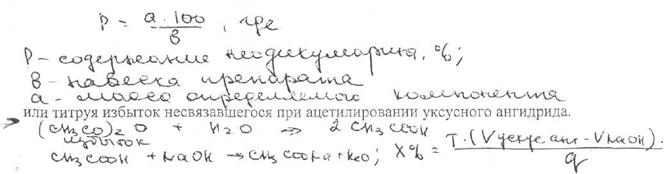 P = a·100 / в, где
P – содержание неодикумарина, %;
в – навеска препарата
а – масса определяемого компонента
или титруя избыток несвязавшегося при ацетилировании уксусного ангидрида.
(CH3CO)2O + H2O → 2 CH3COOH
избыток
CH3COOH + NaOH → CH3COONa + H2O; X% = T·(Vуксус анг - VNaOH)· / q